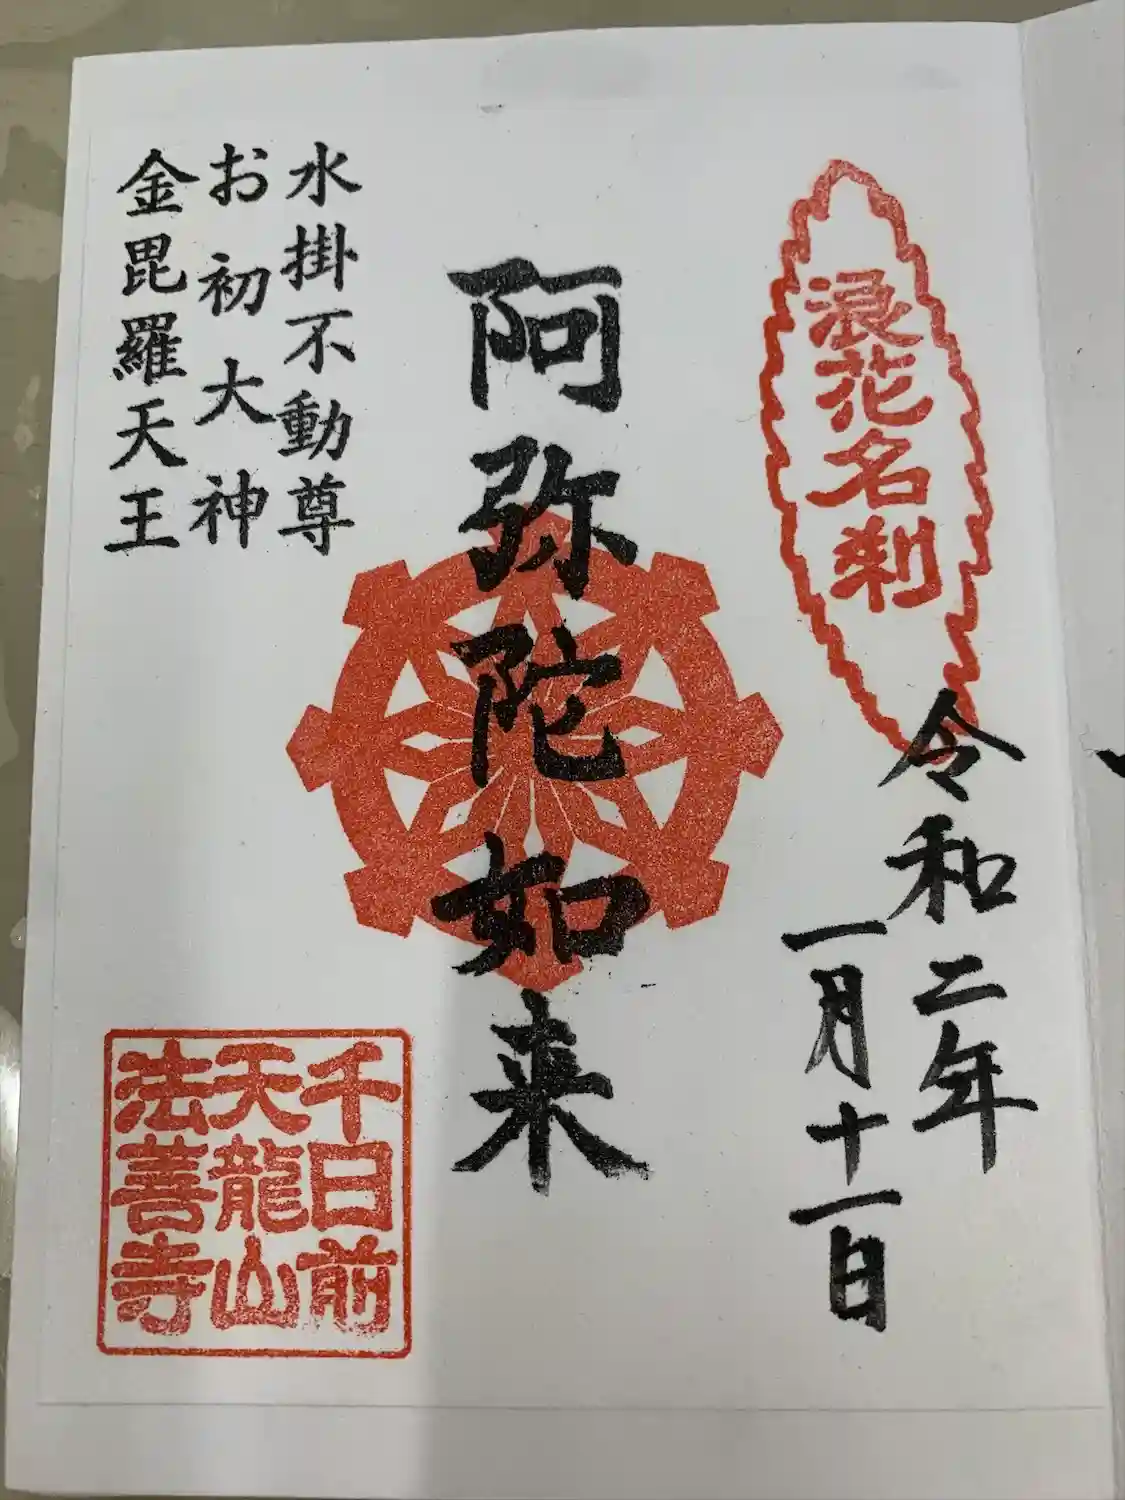 浪花名刹
令和二年
一月十一日
阿弥陀如来
水掛不動尊
お初大神
金毘羅天王
千日前
天龍山
法善寺